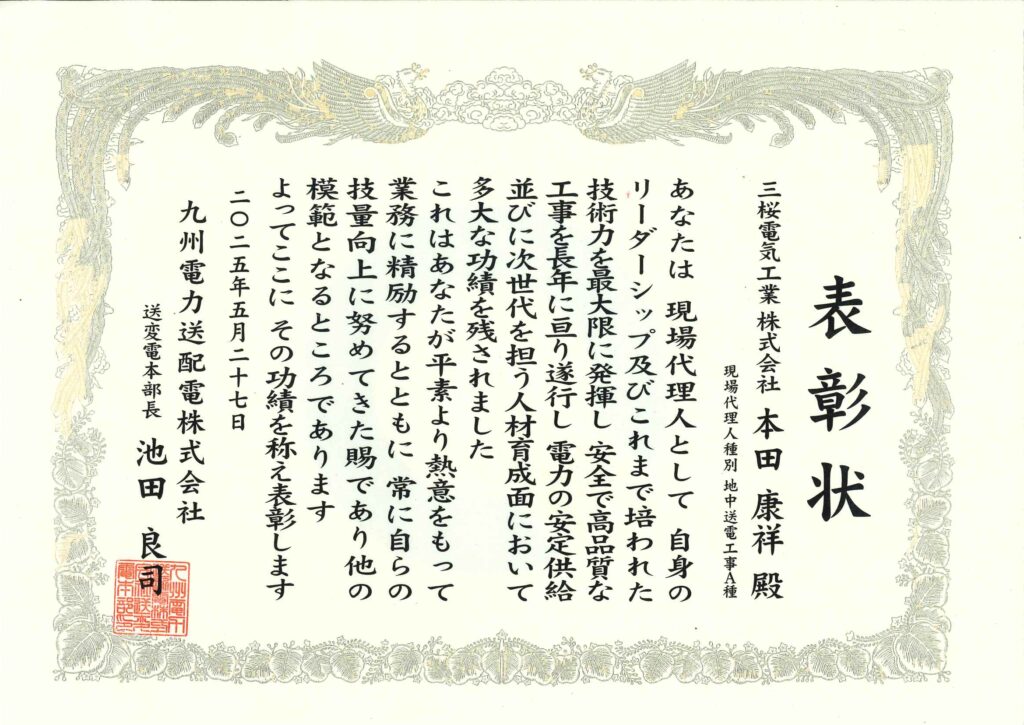 表彰状
三桜電気工業 株式会社 本田 康祥 殿
現場代理人種別 地中送電工事A種
あなたは 現場代理人として 自身の
リーダーシップ及びこれまで培われた
技術力を最大限に発揮し 安全で高品質な
工事を長年に亘り遂行し 電力の安定供給
並びに次世代を担う人材育成面において
多大な功績を残されました
これはあなたが平素より熱意をもって
業務に精励するとともに 常に自らの
技量向上に努めてきた賜であり他の
模範となるところであります
よってここに その功績を称え表彰します
二〇二五年五月二十七日
九州電力送配電株式会社
送変電本部長 池田 良司